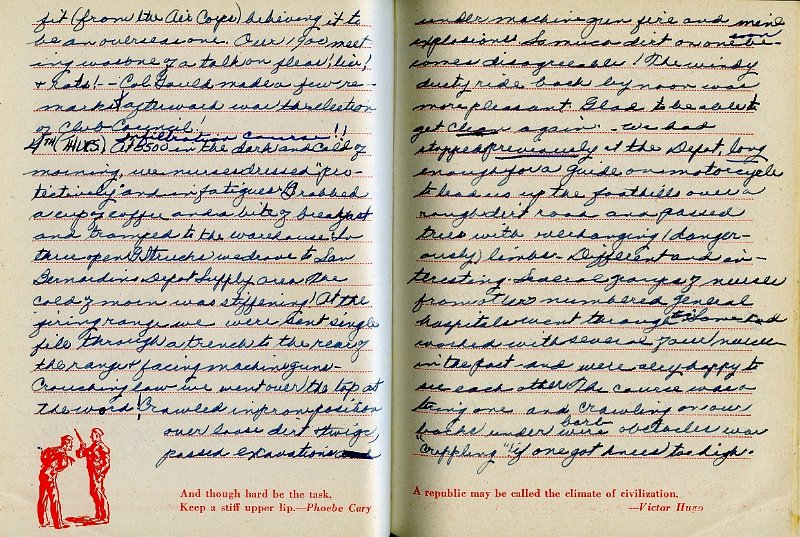 fit (from the Air Corps) believing it to
be an overseas one. Our 1900 meet
ing was one of a talk on fleas! lice!
+ rats! - Col Gould made a few re-
marks, afterward was the election
of Club Council!
Infiltration course!!
4TH (THURS) At 0500 in the dark and cold of
morning, we nurses dressed "pro-
tectively" and in fatigues. Grabbed
a cup of coffee and a bite of breakfast
and tramped to the warehouse. In
three open G.I. trucks we drove to San
Bernardino Depot Supply area. The
cold of morn was stiffening! At the
firing range we were sent single
file through a trench to the rear of
the range + facing machine guns -
Crouching low we went over the top at
the word! Crawled in prone position
over loose dirt + twigs,
passed excavations
And though hard be the task,
Keep a stiff upper lip.—Phoebe Cary
under machine gun fire and mine
explosions. So much dirt on one be-
comes disagreeable! The windy
dusty ride back by noon was
more pleasant. Glad to be able to
get clean again. - We had
stopped previously at the Depot, long
enough for a guide on motorcycle
to lead us up the foothills over a
rough dirt road and passed
trees with overhanging (danger-
ously) limbs. Different and in-
teresting. Several groups of nurses
from other numbered general
hospitals went through too. Some had
worked with several of our nurses
in the past - and were very happy to
see each other. The course was a
tiring one and crawling on our
backs under barb wire obstacles was
"crippling" if one got knees too high.
A republic may be called the climate of civilization.
—Victor Hugo